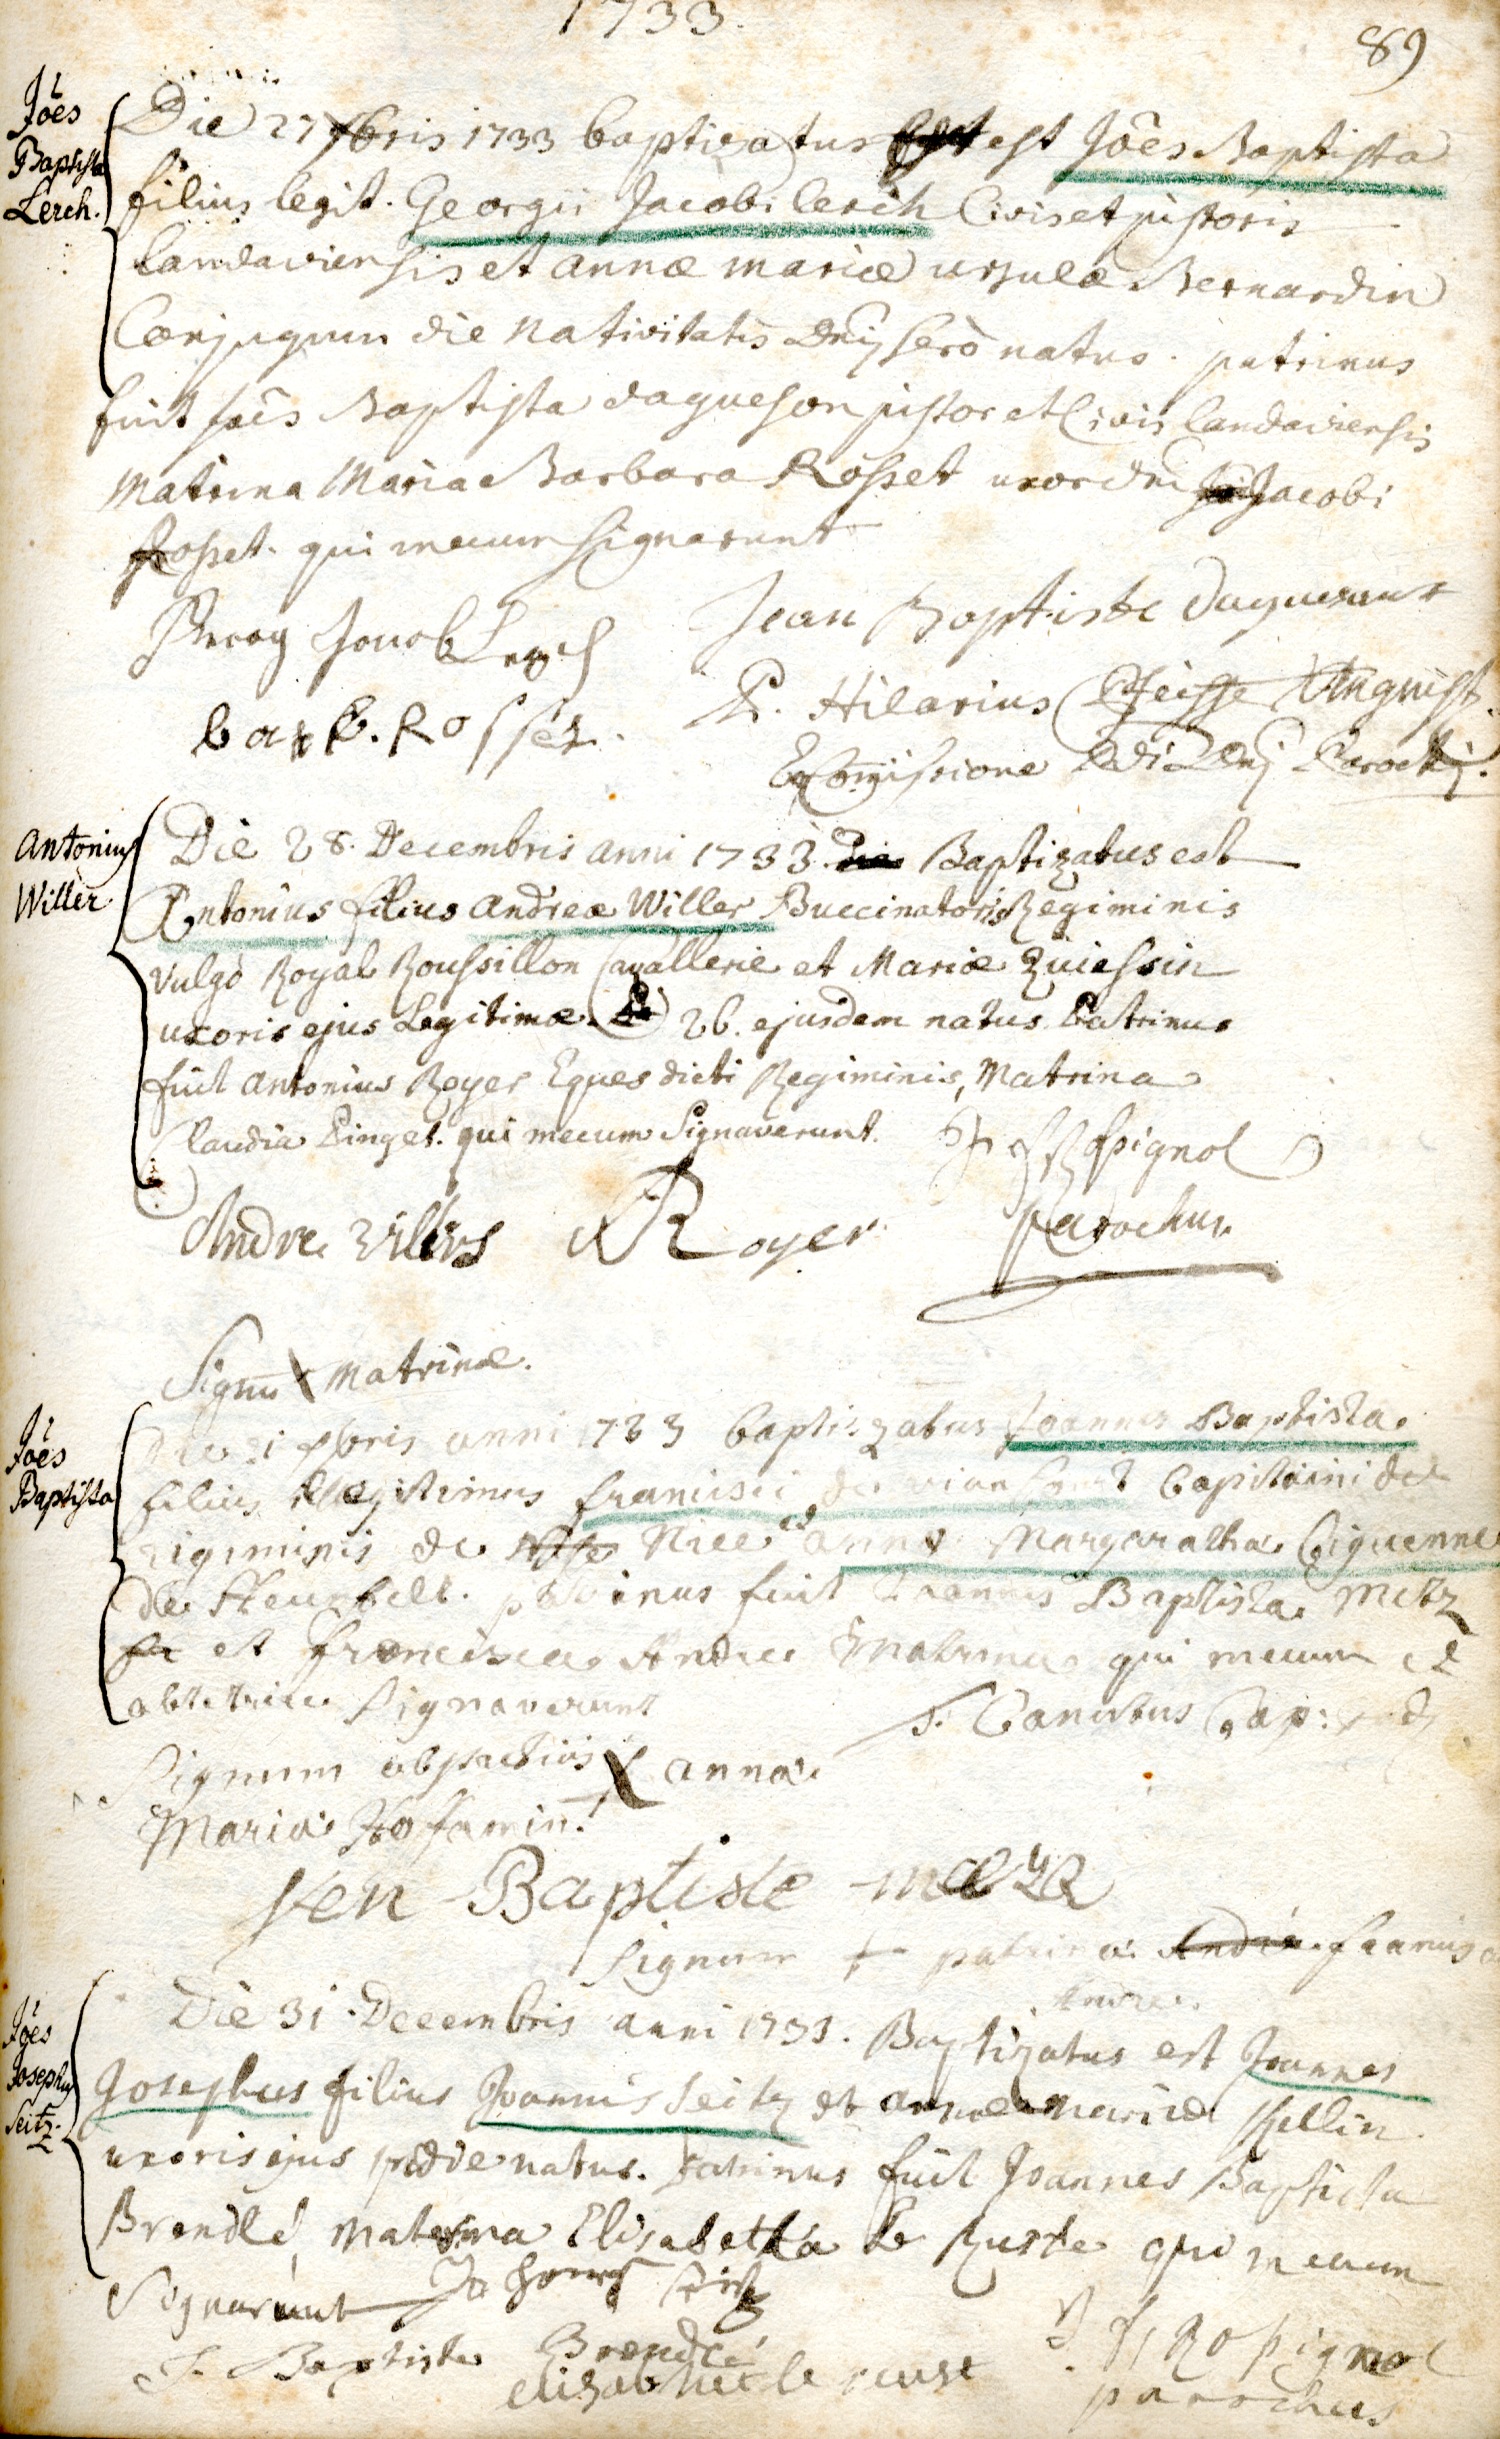 1733.
89
Jôes
Baptista
Lerch.
Die 27 Xbris 1733 baptizatus est Jôes Baptista
filius legit. Georgii Jacobi lerch Civis et pistoris
landaviensis et annæ mariæ ursulæ Bernardin
Conjugum die nativitatis Dnj serò natus. patrinus
fuit Jôes Baptista dagueson pistor et Civis landaviensis
Matrina Maria Barbara Rosset uxor dni Jacobi
Rosset. qui mecum signarunt
Jacob Lerch
Jean Baptiste
barb. Rosser.
P. Hilarius August.
Ex Comissione Dni Parochj.
Antonius
Willer
Die 28. Decembris anni 1733. Baptizatus est
Antonius filius Andreæ Willer Buccinatoris Regiminis
vulgò Royal Roussillon Cavallerie et Mariæ Zuiessin
uxoris ejus Legitimæ. 26. ejusdem natus Patrinus
fuit Antonius Royer Eques dicti Regiminis, Matrina
Claudia Pinget. qui mecum Signaverunt.
Rospignol
Parochus
Andre villers
Royer
Signu matrinæ.
Jôes
Baptista
Die 31 Xbris anni 1733 baptizatus Joannes Baptista
filius illegitimus francisci de Capitaini de
regiminis de Nice et anna Margaratha Ciguenne
de patrinus fuit Joannes Baptista Metz
et francisca Andree matrina qui mecum et
obstetrice signaverunt
F. Canutus Cap:
Signum obstetricis anna
Maria Hofamin
Jen Baptiste
Signum + patrina francisca
Andree.
Jôes
Josephus
Seitz.
Die 31. Decembris anni 1733. Baptizatus est Joannes
Josephus filius Joannis Seitz et annæ mariæ
uxoris ejus pridie natus. Patrinus fuit Joannes Baptista
Brendlé, matrina Elisabetha le Ruste qui mecum
Signarunt
J. Baptiste Brendlé
elisabhet le reust
Rospignol
parochus